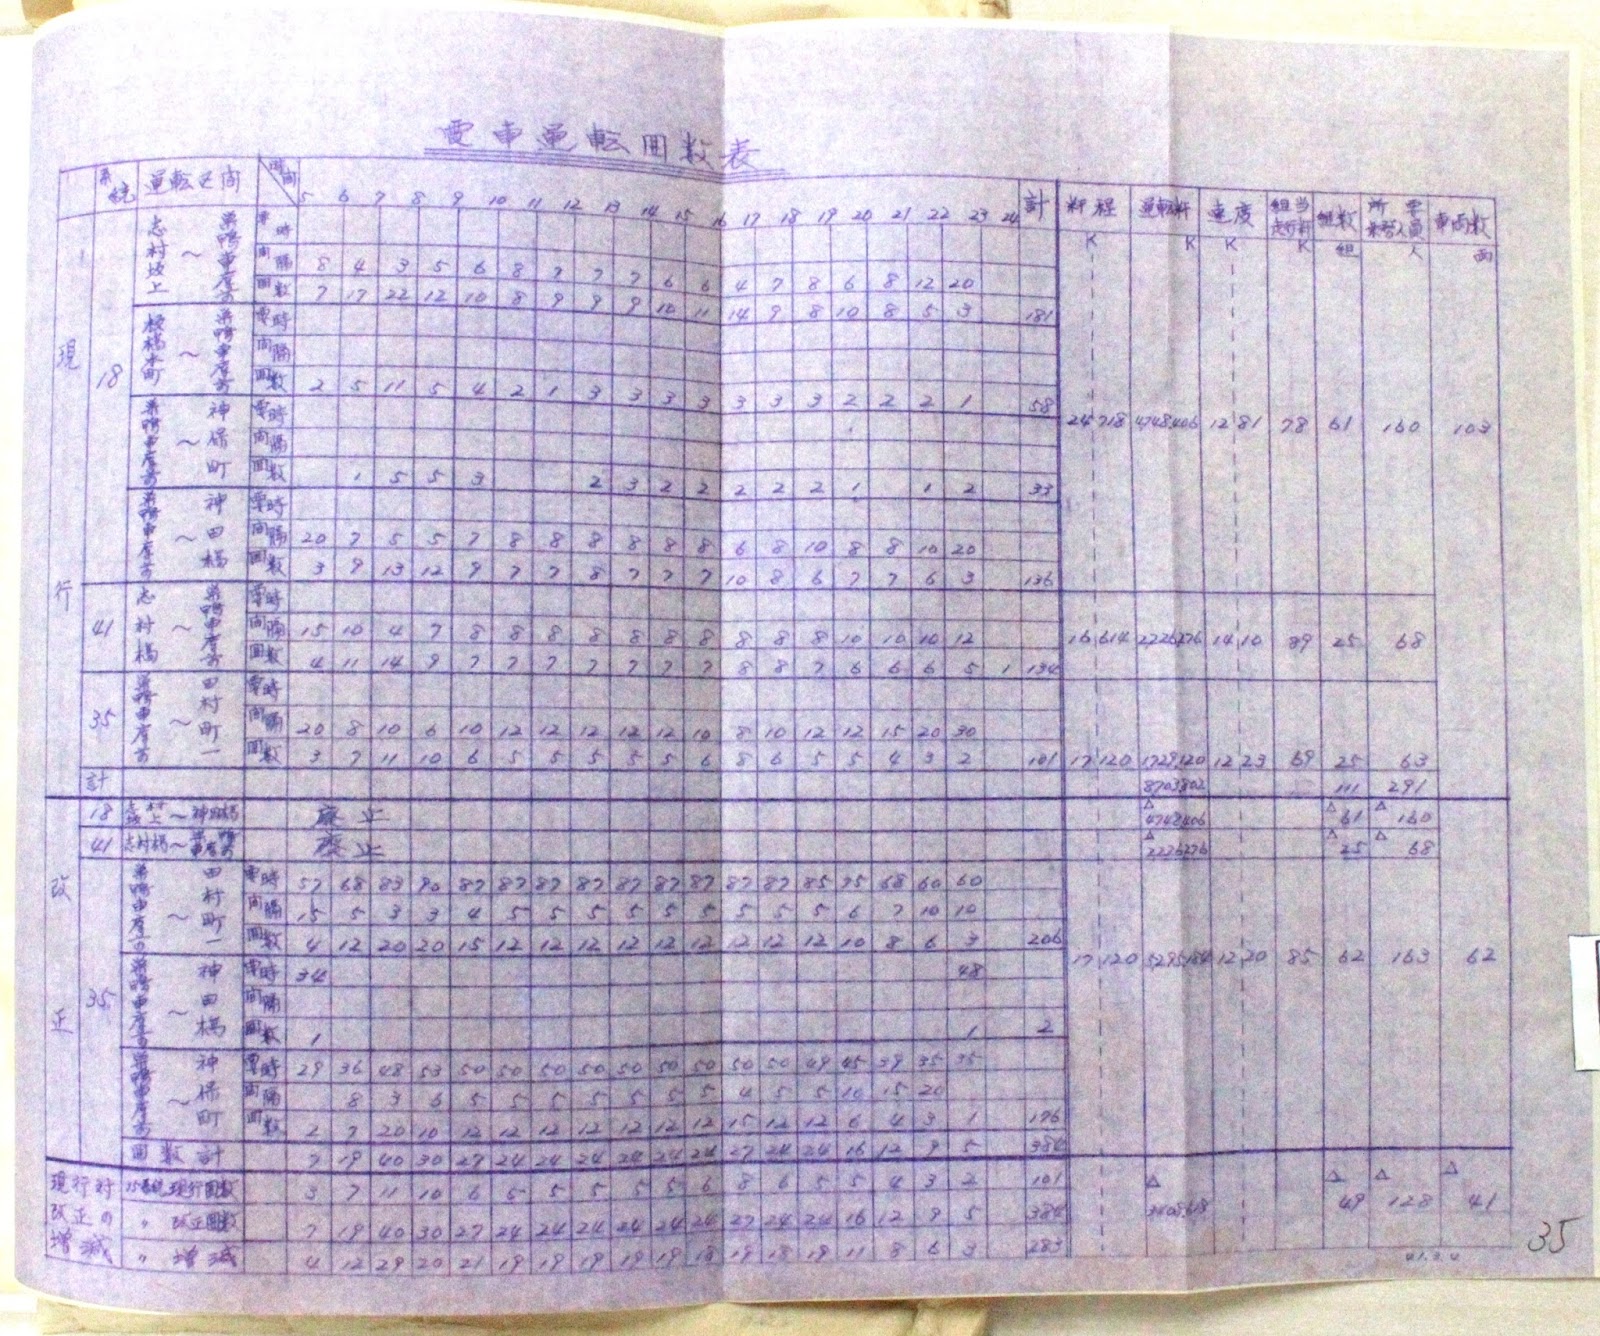 電車運転回数表
系統 運転区間 時間 5 6 7 8 9 10 11 12 13 14 15 16 17 18 19 20 21 22 23 24 計 粁程 運転粁 速度 組当走行粁 組数 所要乗務人員 車両数
K K K K 組 人 両
現行
18 志村坂上 ~ 巣鴨車庫前 電時
間隔 8 4 3 5 6 8 7 7 7 6 6 4 7 8 6 8 12 20
回数 7 17 22 12 10 8 9 9 9 10 11 14 9 8 10 8 5 3 181
板橋本町 ~ 巣鴨車庫前 電時
間隔
回数 2 5 11 5 4 2 1 3 3 3 3 3 3 3 2 2 2 1 58
24 718 4748,406 12 81 78 61 160 103
巣鴨車庫前 ~ 神保町 電時
間隔
回数 1 5 5 3 2 3 2 2 2 2 2 1 1 2 33
巣鴨車庫前 ~ 神田橋 電時
間隔 20 7 5 5 7 8 8 8 8 8 8 6 8 10 8 8 10 20
回数 3 9 13 12 9 7 7 8 7 7 7 10 8 6 7 7 6 3 136
41 志村橋 ~ 巣鴨車庫前 電時
間隔 15 10 4 7 8 8 8 8 8 8 8 8 8 8 10 10 10 12 16 614 2226276 14 10 89 25 68
回数 4 11 14 9 7 7 7 7 7 7 7 8 8 7 6 6 6 5 1 134
35 巣鴨車庫前 ~ 田村町一 電時
間隔 20 8 10 6 10 12 12 12 12 12 10 8 10 12 12 15 20 30
回数 3 7 11 10 6 5 5 5 5 5 6 8 6 5 5 4 3 2 101 17 120 1729,120 12 23 69 25 63
計 8703802 111 291
改正
18 志村坂上~神田橋 廃止 △4748,406 △61 △160
41 志村橋~巣鴨車庫前 廃止 △2226276 △25 △68
35 巣鴨車庫前 ~ 田村町一 電時 57 68 83 90 87 87 87 87 87 87 87 87 87 85 75 68 60 60
間隔 15 5 3 3 4 5 5 5 5 5 5 5 5 5 6 7 10 10
回数 4 12 20 20 15 12 12 12 12 12 12 12 12 12 10 8 6 3 206
17 120 5295184 12 20 85 62 163 62
巣鴨車庫前 ~ 神田橋 電時 34 48
間隔
回数 1 1 2
巣鴨車庫前 ~ 神保町 電時 29 36 48 53 50 50 50 50 50 50 50 50 50 49 45 39 35 35
間隔 8 3 6 5 5 5 5 5 5 5 4 5 5 10 15 20
回数 2 7 20 10 12 12 12 12 12 12 12 15 12 12 6 4 3 1 176
回数計 7 19 40 30 27 24 24 24 24 24 24 27 24 24 16 12 9 5 384
現行対改正の増減
現行回数 3 7 11 10 6 5 5 5 5 5 6 8 6 5 5 4 3 2 101
〃 改正回数 7 19 40 30 27 24 24 24 24 24 24 27 24 24 16 12 9 5 384 △3408618 △49 △128 △41
〃 増減 4 12 29 20 21 19 19 19 19 19 18 19 18 19 11 8 6 3 283
35